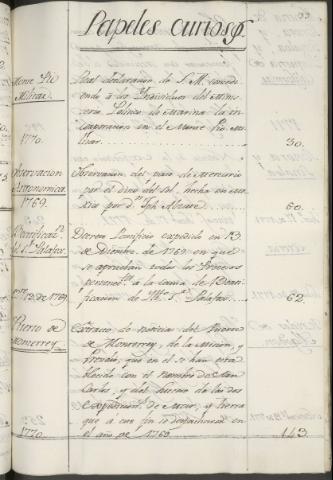 Papeles curiosos.
Monte Pío Militar.
1770.
Real declaracion de S. M. conce-
diendo à los Individuos del Minis-
terio Político de Marina la in-
corporacion en el Monte Pío Mi-
litar.
30.
Observacion Astronomica.
1769.
Observacion del paso de Mercurio
por el disco del sol, hecha en Me-
xico por Dn. Jph. Alzate.
60.
Beatificacn. del Sr. Palafox.
Decreto Pontificio expedido en 13
de Diciembre de 1769 en que
se aprueban todos los Procesos
à la causa de Beati-
ficacion de Palafox.
62.
Puerto de Monterrey.
1770.
Extracto de noticias del Puerto
de Monterrey, de la Mision, y
Presidio, que en el se han esta-
blecido con el nombre de San
Carlos, y del suceso de las dos
Expedicions. de Mar, y tierra
que à este fin se despacharon en
el año de 1769.
143.